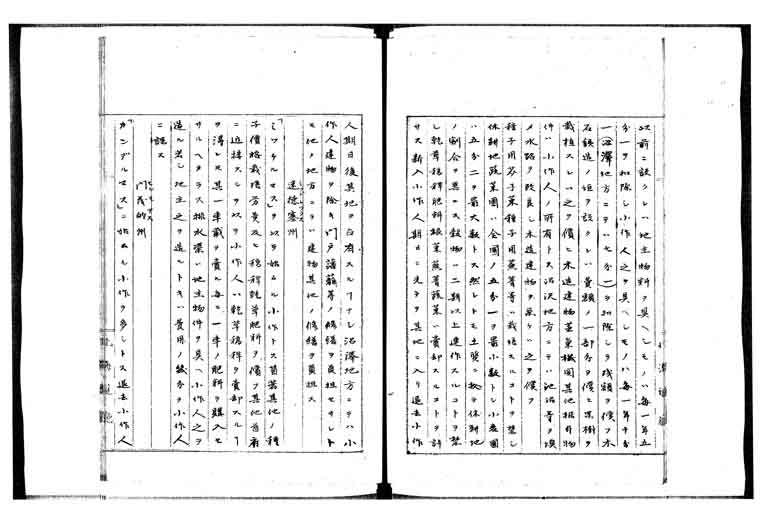 以前ニ設クレハ地主物料ヲ具ヘシモノハ毎一年五
分一ヲ扣除シ小作人之ヲ具ヘシモノハ毎一年十分
一(沼澤地方ニテハ七分一)ヲ扣除シテ残額ヲ償フ木
石鉄造ノ垣ヲ設クレハ費額ノ一部分ヲ償ヒ果樹ヲ
栽植スレハ之ヲ償ヒ木造建物蒸気機関其他根着物
件ハ小作人ノ所有トス沼沢地方ニテハ池沼等ヲ
メ水路ヲ改良シ木造建物ヲ築ケハ之ヲ償フ
種子用芥子菜種子用蕪菁等ハ栽培スルコトヲ禁シ
休耕地蔬菜園ハ全圃ノ五分一ヲ最小数トシ小麦圃
ハ五分二ヲ最大数トス然レトモ土質ニ依テ休耕地
ノ割合ヲ異ニス穀物ハ二期以上連作スルコトヲ禁
シ乾草稭稈肥料根菜蕪菁蔬菜ハ賣却スルコトヲ許
サス新入小作人期日ニ先テ其地ニ入リ退去小作
人期日後其地ヲ占有スルコトナシ沼澤地方ニテハ小
作人建物ヲ除キ門戸藩籬等ノ修繕ヲ負担セサレト
モ他ノ地方ニテハ建物其他ノ修繕ヲ負担ス
達徳塞州
「ミツチルマス」ヲ以テ始ムル小作トス苜蓿其他ノ種
子價格栽培労費及ヒ稭稈乾草肥料ヲ償フ其他首府
ニ近接スルヲ以テ小作人ハ乾草稭稈ヲ賣却スルコト
ヲ得レモ其一車載ヲ賣ル毎ニ一車ノ肥料ヲ購入セ
サルヘカラス排水渠ハ地主物件ヲ具ヘ小作人之ヲ
造ル若シ地主之ヲ造ルトキハ費用ノ幾分ヲ小作人
ニ課ス
門茂的州
「カンデルマス」ニ始ムル小作ヲ多シトス退去小作人